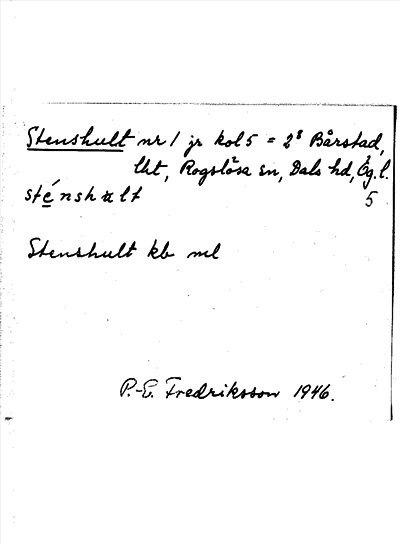 Stenshult nr 1 jr kol 5 = 2⁸ Bårstad,
lht, Rogslösa sn, Dals hd, Ög. l.
sténshult 5
Stenshult kb ml
P.-E. Fredriksson 1946.